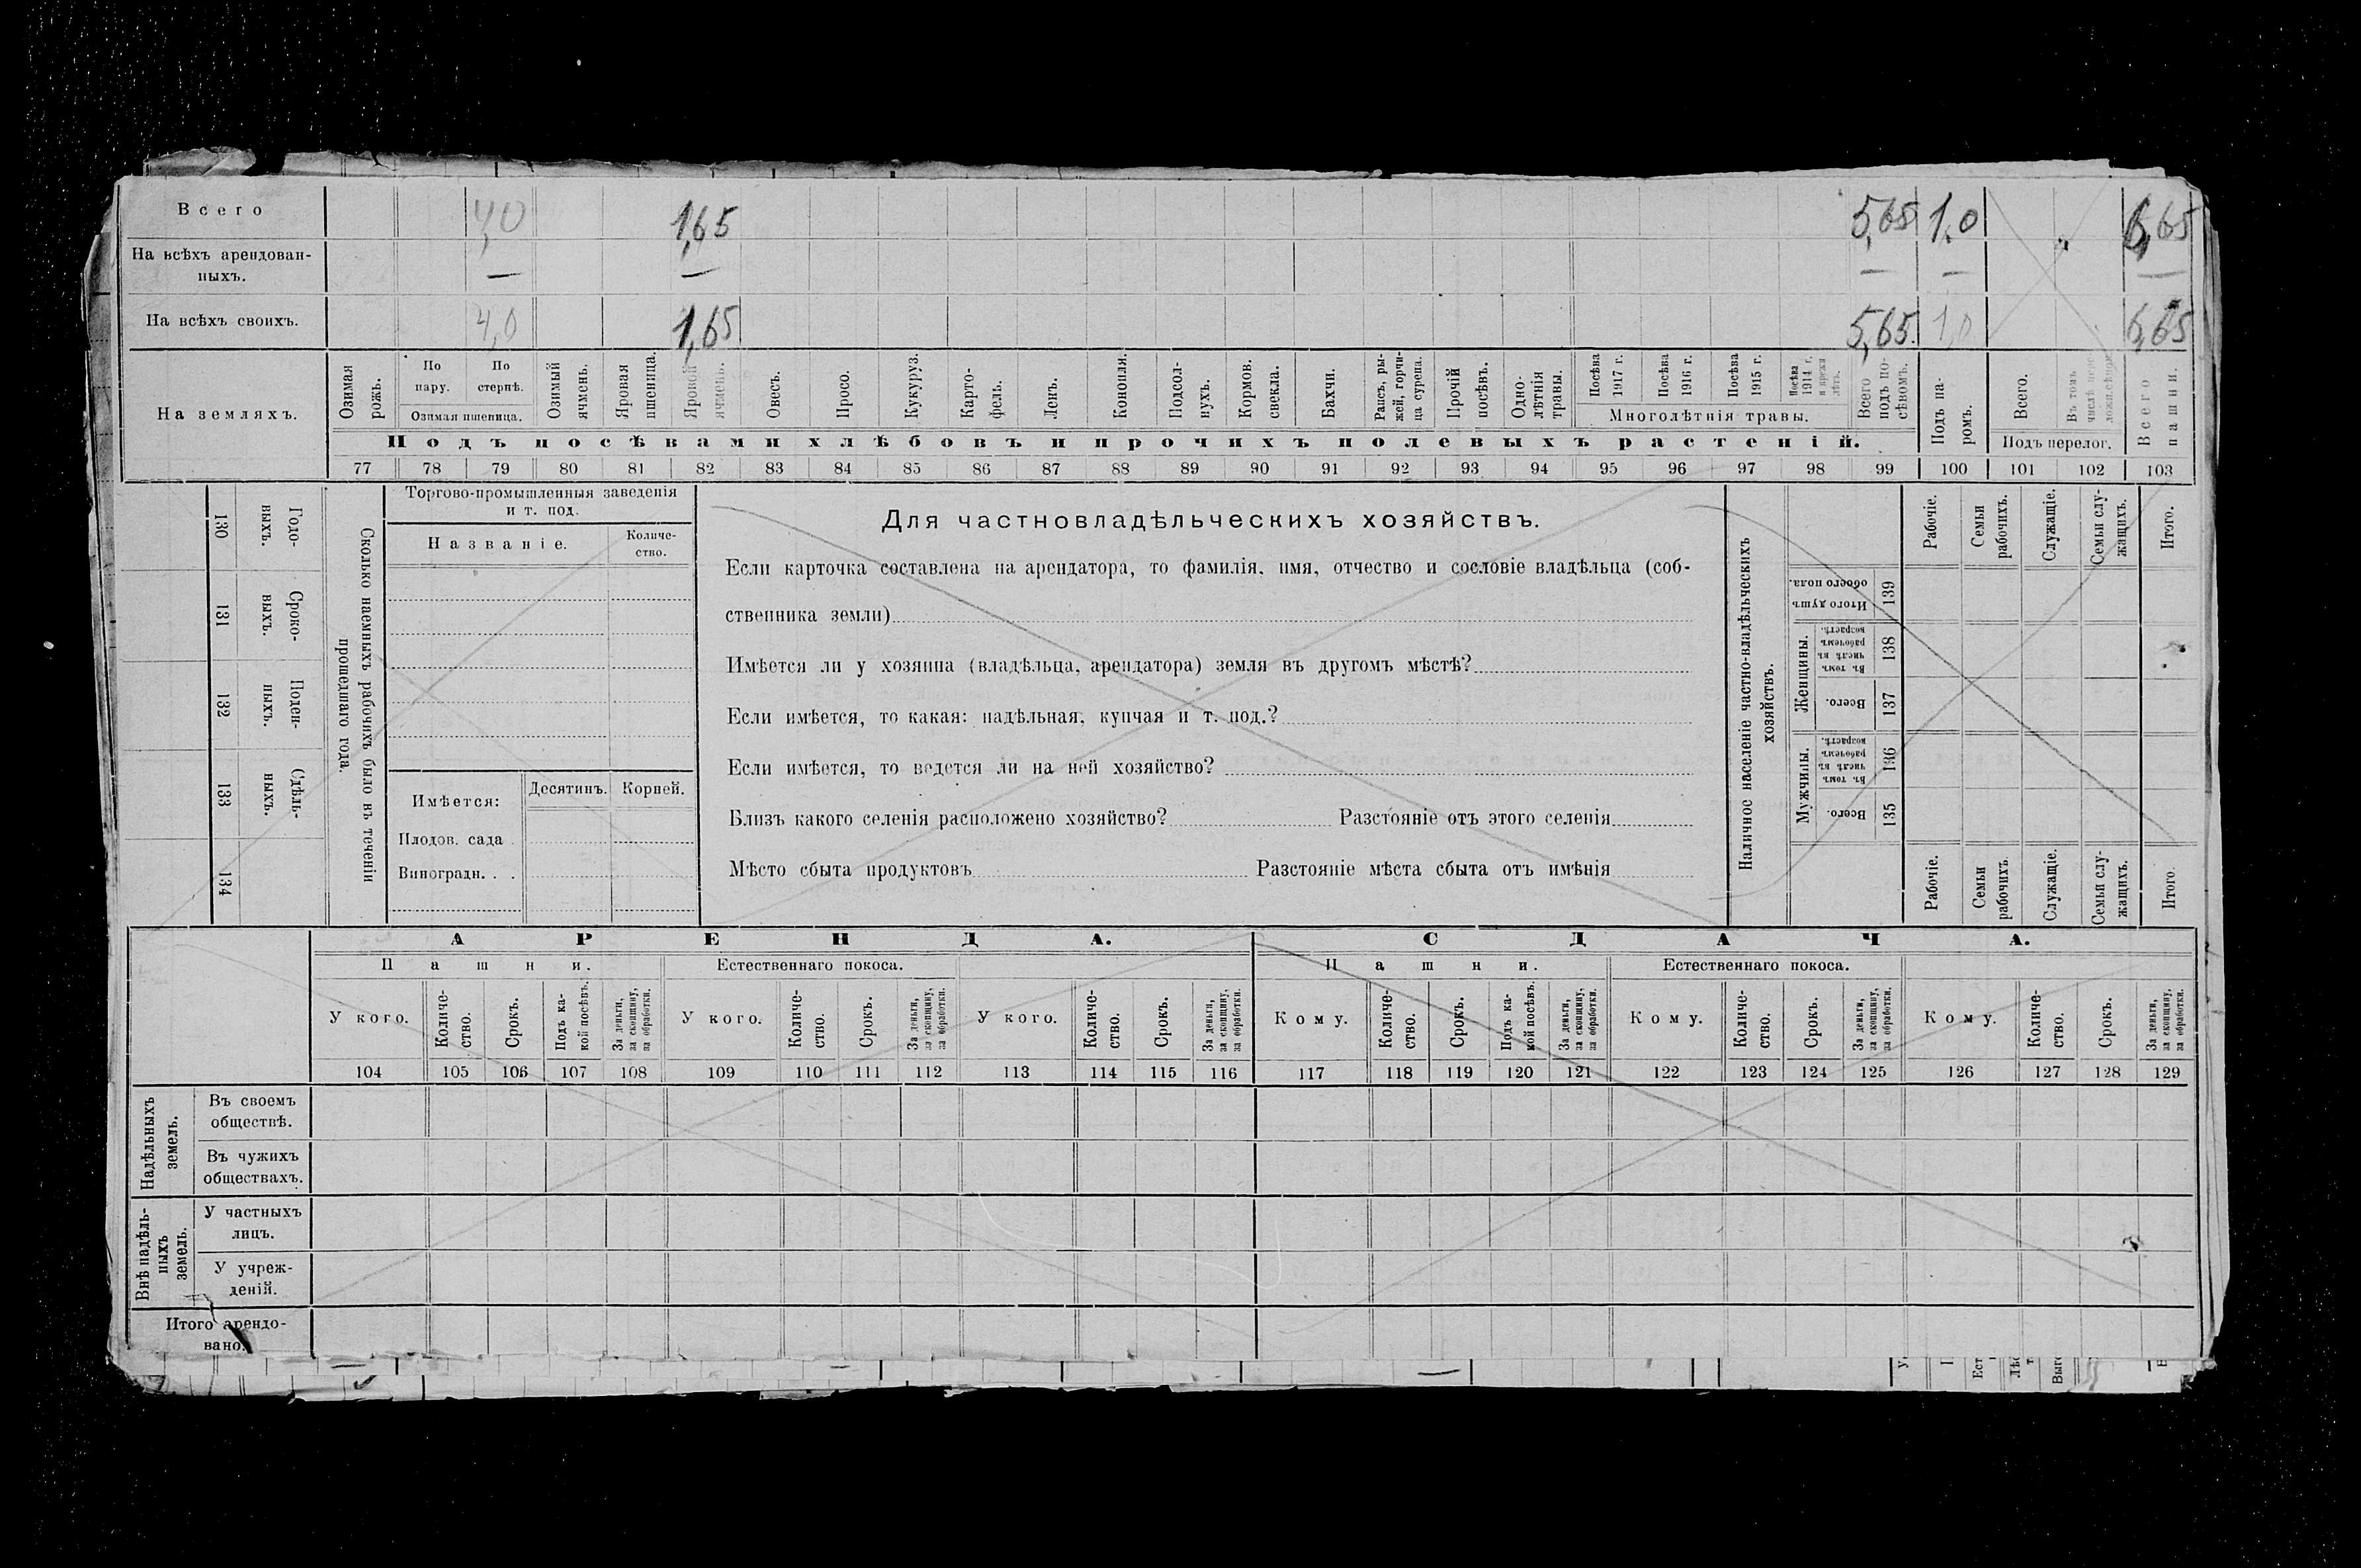 Всего 4,0 1,65 5,65 1,0 6,65
На всѣхъ арендован-
ныхъ. — — — — —
На всѣхъ своихъ. 4,0 1,65 5,65 1,0 6,65
На земляхъ.
Озимая рожь.
По пару.
По стернѣ.
Озимая пшеница.
Озимый ячмень.
Яровая пшеница.
Яровой ячмень.
Овесъ.
Просо.
Кукуруз.
Карто-
фель.
Ленъ.
Конопля.
Подсол-
нухъ.
Кормов.
свекла.
Бахчи.
Рапсъ, ры-
жей, горчи-
ца сурепа.
Прочій
посѣвъ.
Одно-
лѣтнія
травы.
Посѣва
1917 г.
Посѣва
1916 г.
Посѣва
1915 г.
Посѣва
1914 г.
Многолѣтнія травы.
Всего
подъ по-
сѣвомъ.
Подъ па-
ромъ.
Всего.
Въ томъ
числѣ
Подъ перелог.
Всего
пашни.
Подъ посѣвами хлѣбовъ и прочихъ полевыхъ растеній.
77 78 79 80 81 82 83 84 85 86 87 88 89 90 91 92 93 94 95 96 97 98 99 100 101 102 103
Сколько наемныхъ рабочихъ было въ теченіи
прошедшаго года.
Годо-
выхъ.
130
Сроко-
выхъ.
131
Поден-
ныхъ.
132
Сдѣль-
ныхъ.
133
134
Торгово-промышленныя заведенія
и т. под.
Названіе.
Количе-
ство.
Имѣется:
Десятинъ. Корней.
Плодов. сада .
Виноградн. . .
Для частновладѣльческихъ хозяйствъ.
Если карточка составлена на арендатора, то фамилія, имя, отчество и сословіе владѣльца (соб-
ственника земли)
Имѣется ли у хозяина (владѣльца, арендатора) земля въ другомъ мѣстѣ?
Если имѣется, то какая: надѣльная, купчая и т. под.?
Если имѣется, то ведется ли на ней хозяйство?
Близъ какого селенія расположено хозяйство? Разстояніе отъ этого селенія
Мѣсто сбыта продуктовъ Разстояніе мѣста сбыта отъ имѣнія
Наличное населеніе частно-владѣльческихъ
хозяйствъ.
Рабочіе.
Семьи
рабочихъ.
Служащіе.
Семьи слу-
жащихъ.
Итого.
Итого душъ
обоего пола.
139
Женщины.
Въ томъ
числѣ въ
рабочемъ
возрастѣ.
138
Всего.
137
Мужчины.
Въ томъ
числѣ въ
рабочемъ
возрастѣ.
136
Всего.
135
Рабочіе.
Семьи
рабочихъ.
Служащіе.
Семьи слу-
жащихъ.
Итого.
АРЕНДА. СДАЧА.
Пашни. Естественнаго покоса. Пашни. Естественнаго покоса.
У кого.
Количе-
ство.
Срокъ.
Подъ ка-
кой посѣвъ.
За деньги,
за скопщину,
за обработки.
У кого.
Количе-
ство.
Срокъ.
За деньги,
за скопщину,
за обработки.
У кого.
Количе-
ство.
Срокъ.
За деньги,
за скопщину,
за обработки.
Кому.
Количе-
ство.
Срокъ.
Подъ ка-
кой посѣвъ.
За деньги,
за скопщину,
за обработки.
Кому.
Количе-
ство.
Срокъ.
За деньги,
за скопщину,
за обработки.
Кому.
Количе-
ство.
Срокъ.
За деньги,
за скопщину,
за обработки.
104 105 106 107 108 109 110 111 112 113 114 115 116 117 118 119 120 121 122 123 124 125 126 127 128 129
Надѣльныхъ
земель.
Въ своемъ
обществѣ.
Въ чужихъ
обществахъ.
Внѣ надѣль-
ныхъ
земель.
У частныхъ
лицъ.
У учреж-
деній.
Итого арендо-
вано.